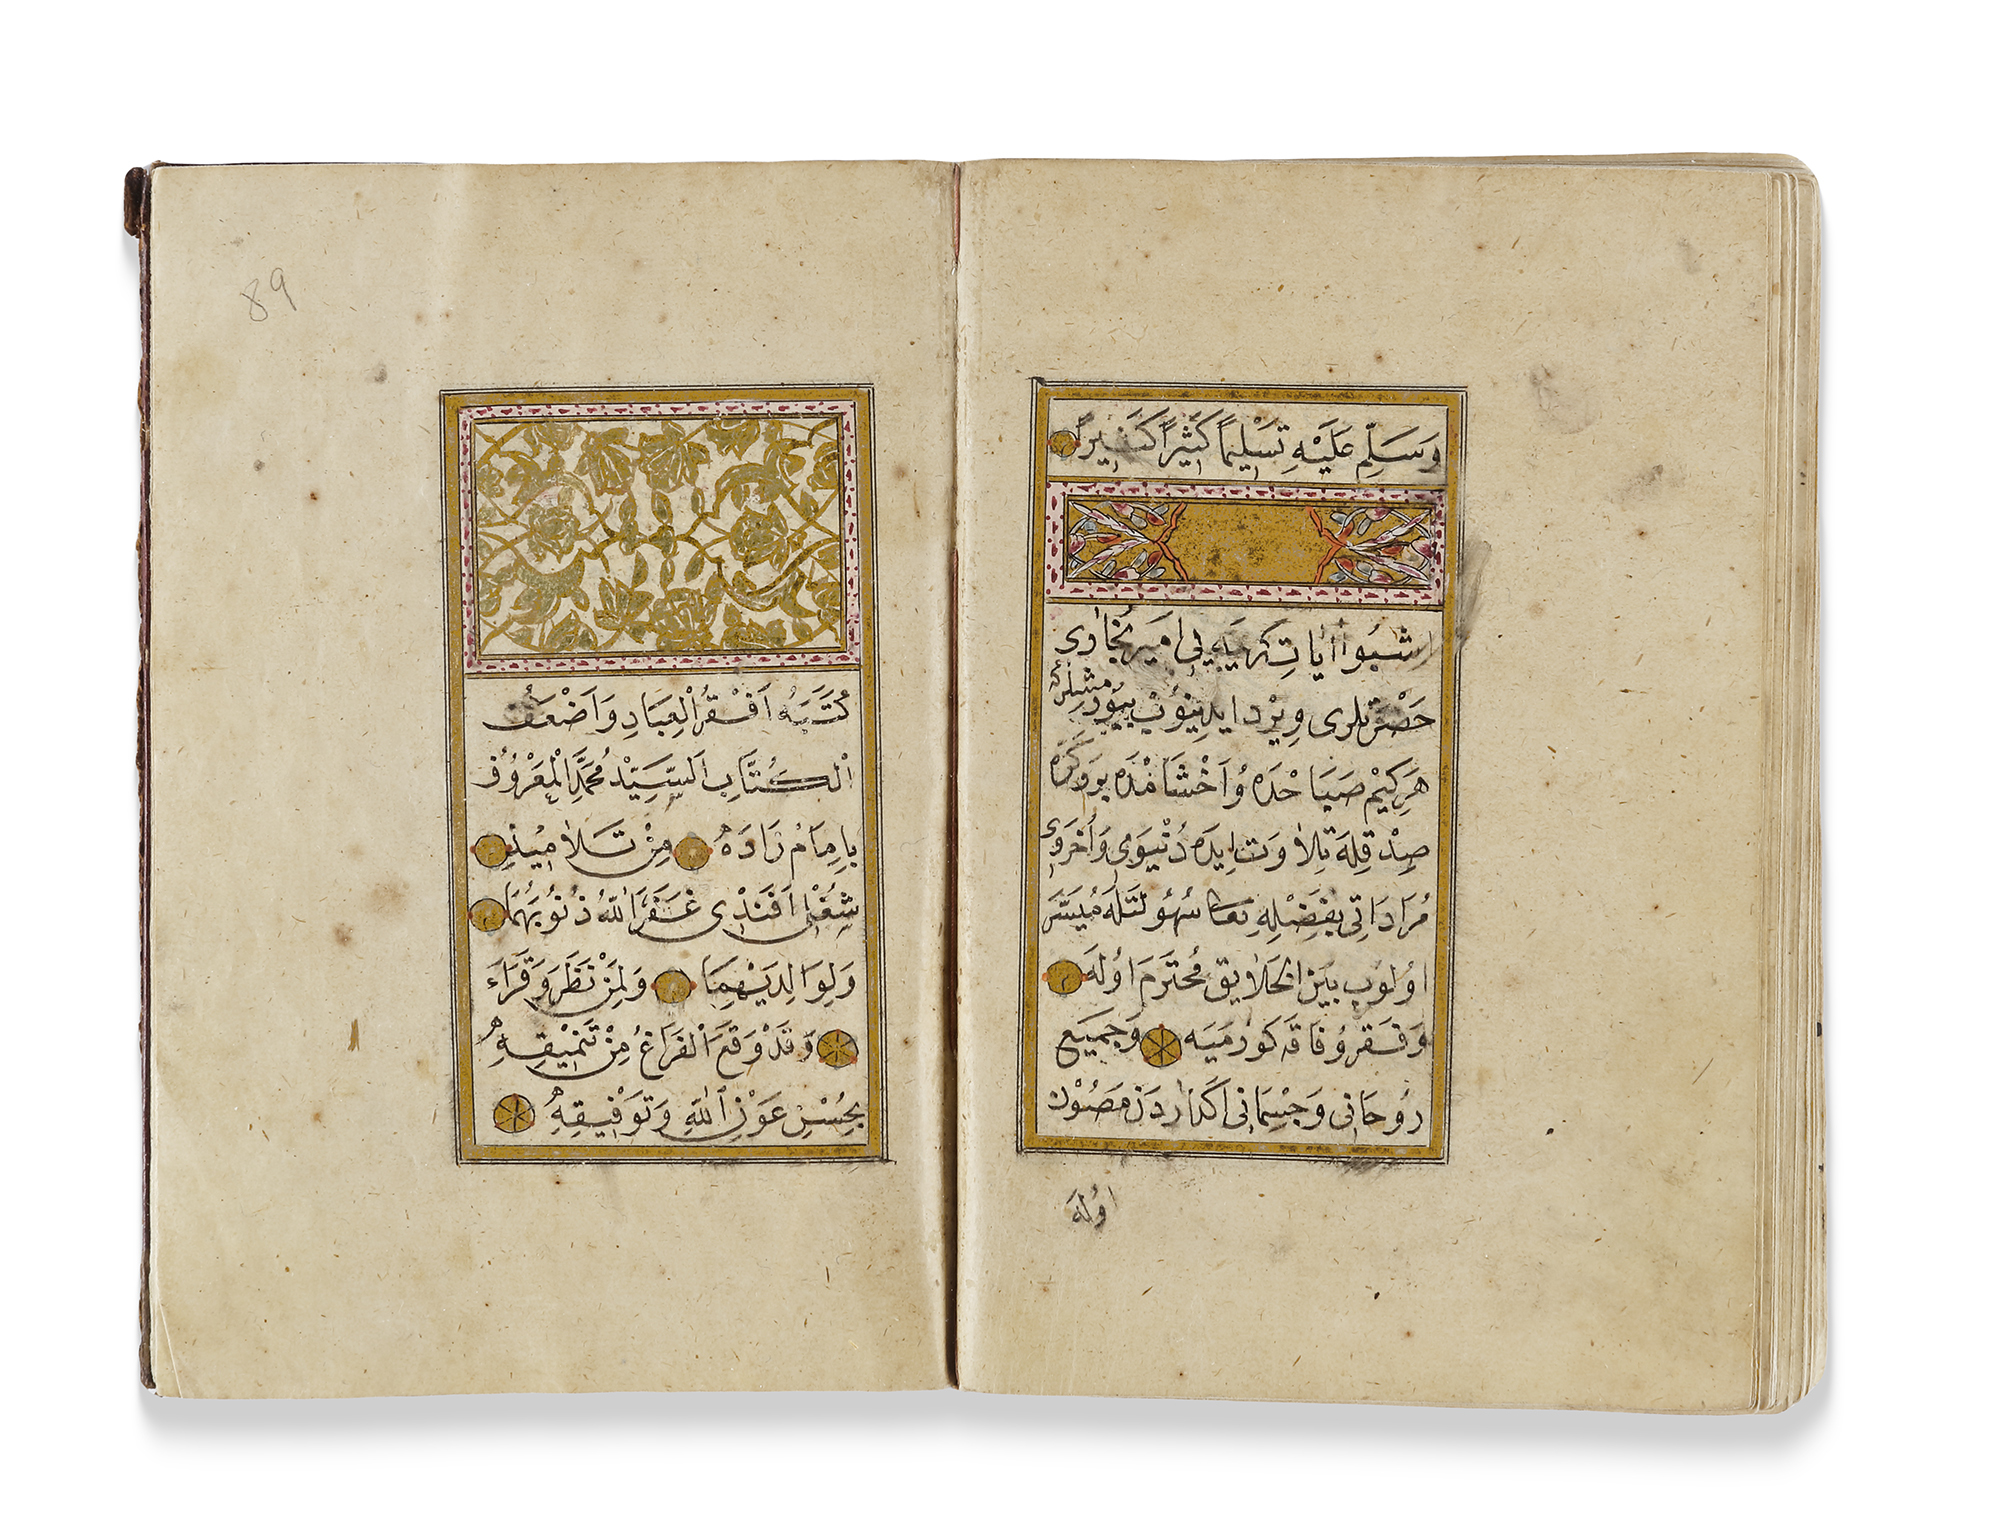 وَسَلِّمْ عَلَيْهِ تَسْلِيمًا كَثِيرًا كَثِيرًا
اشبُوا اٰيَاتِ كَرِيمَه يِى اَمِير بُخَارٰى
حَضْرَتلَرى وِيرْد ايدِينُوبْ بيُورمشلركه
هَر كِيمْ صَبَاحْدَه وُاَخْشَامْدَه بِرَر كَرَّه
صِدْقِلَه تِلاٰوَت ايدَه دُنْيَوِى وَاُخْرَوِى
مُرَادَاتِى بِفَضْلِهِ تعا سُهُولَتلَه مُيَسَّر
اوُلُوب بَيْنَ الخَلاٰيِق مُحتَرَمْ اوُلَه
وَفَقرُوفَاقَه كورمَيَه وَجَمِيع
رُوحَانى وَجِسْمَانى اكدَاردَن مَصُوْن
اوُلَه
89
كَتَبَهُ اَفْقَرُ الْعِبَادِ وَاَضْعَفُ
الْكُتَّابِ اَلسَّيِّدْ مُحَمَّدِ الْمَعْرُوُفِ
بِاِمَامْ زَادَهْ مِنْ تَلاٰمِيْذِ
شُغْلِى اَفَنْدِى غَفَرَ اللّٰهُ ذُنُوُبَهُمَا
وَلِوَالِدَيْهِمَا وَلِمَنْ نَظَرَ وَقَرَاءَ
وَقَدْ وَقَعَ الْفَرَاغُ مِنْ تَنْمِيْقِهِ
بِحُسْنِ عَوْنِ اللّٰهِ وَتَوْفِيقِهِ